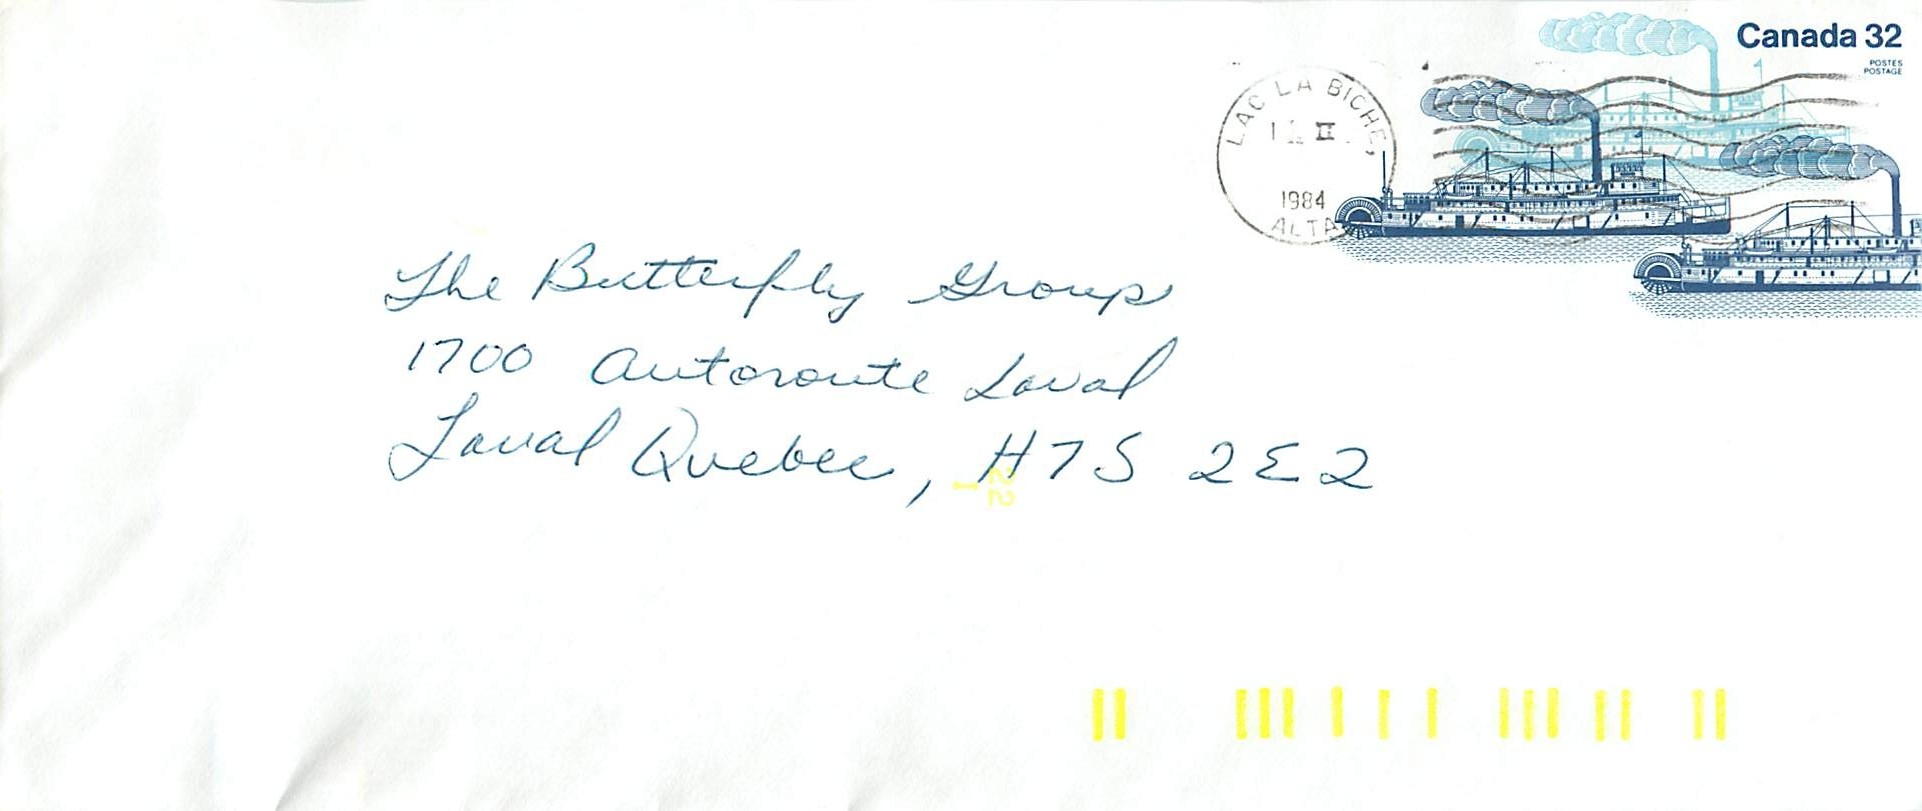 Canada 32
POSTES
POSTAGE
LAC LA BICHE,
II
1984
ALTA
The Butterfly Group
1700 Autoroute Laval
Laval Quebec, H7S 2E2
22
1